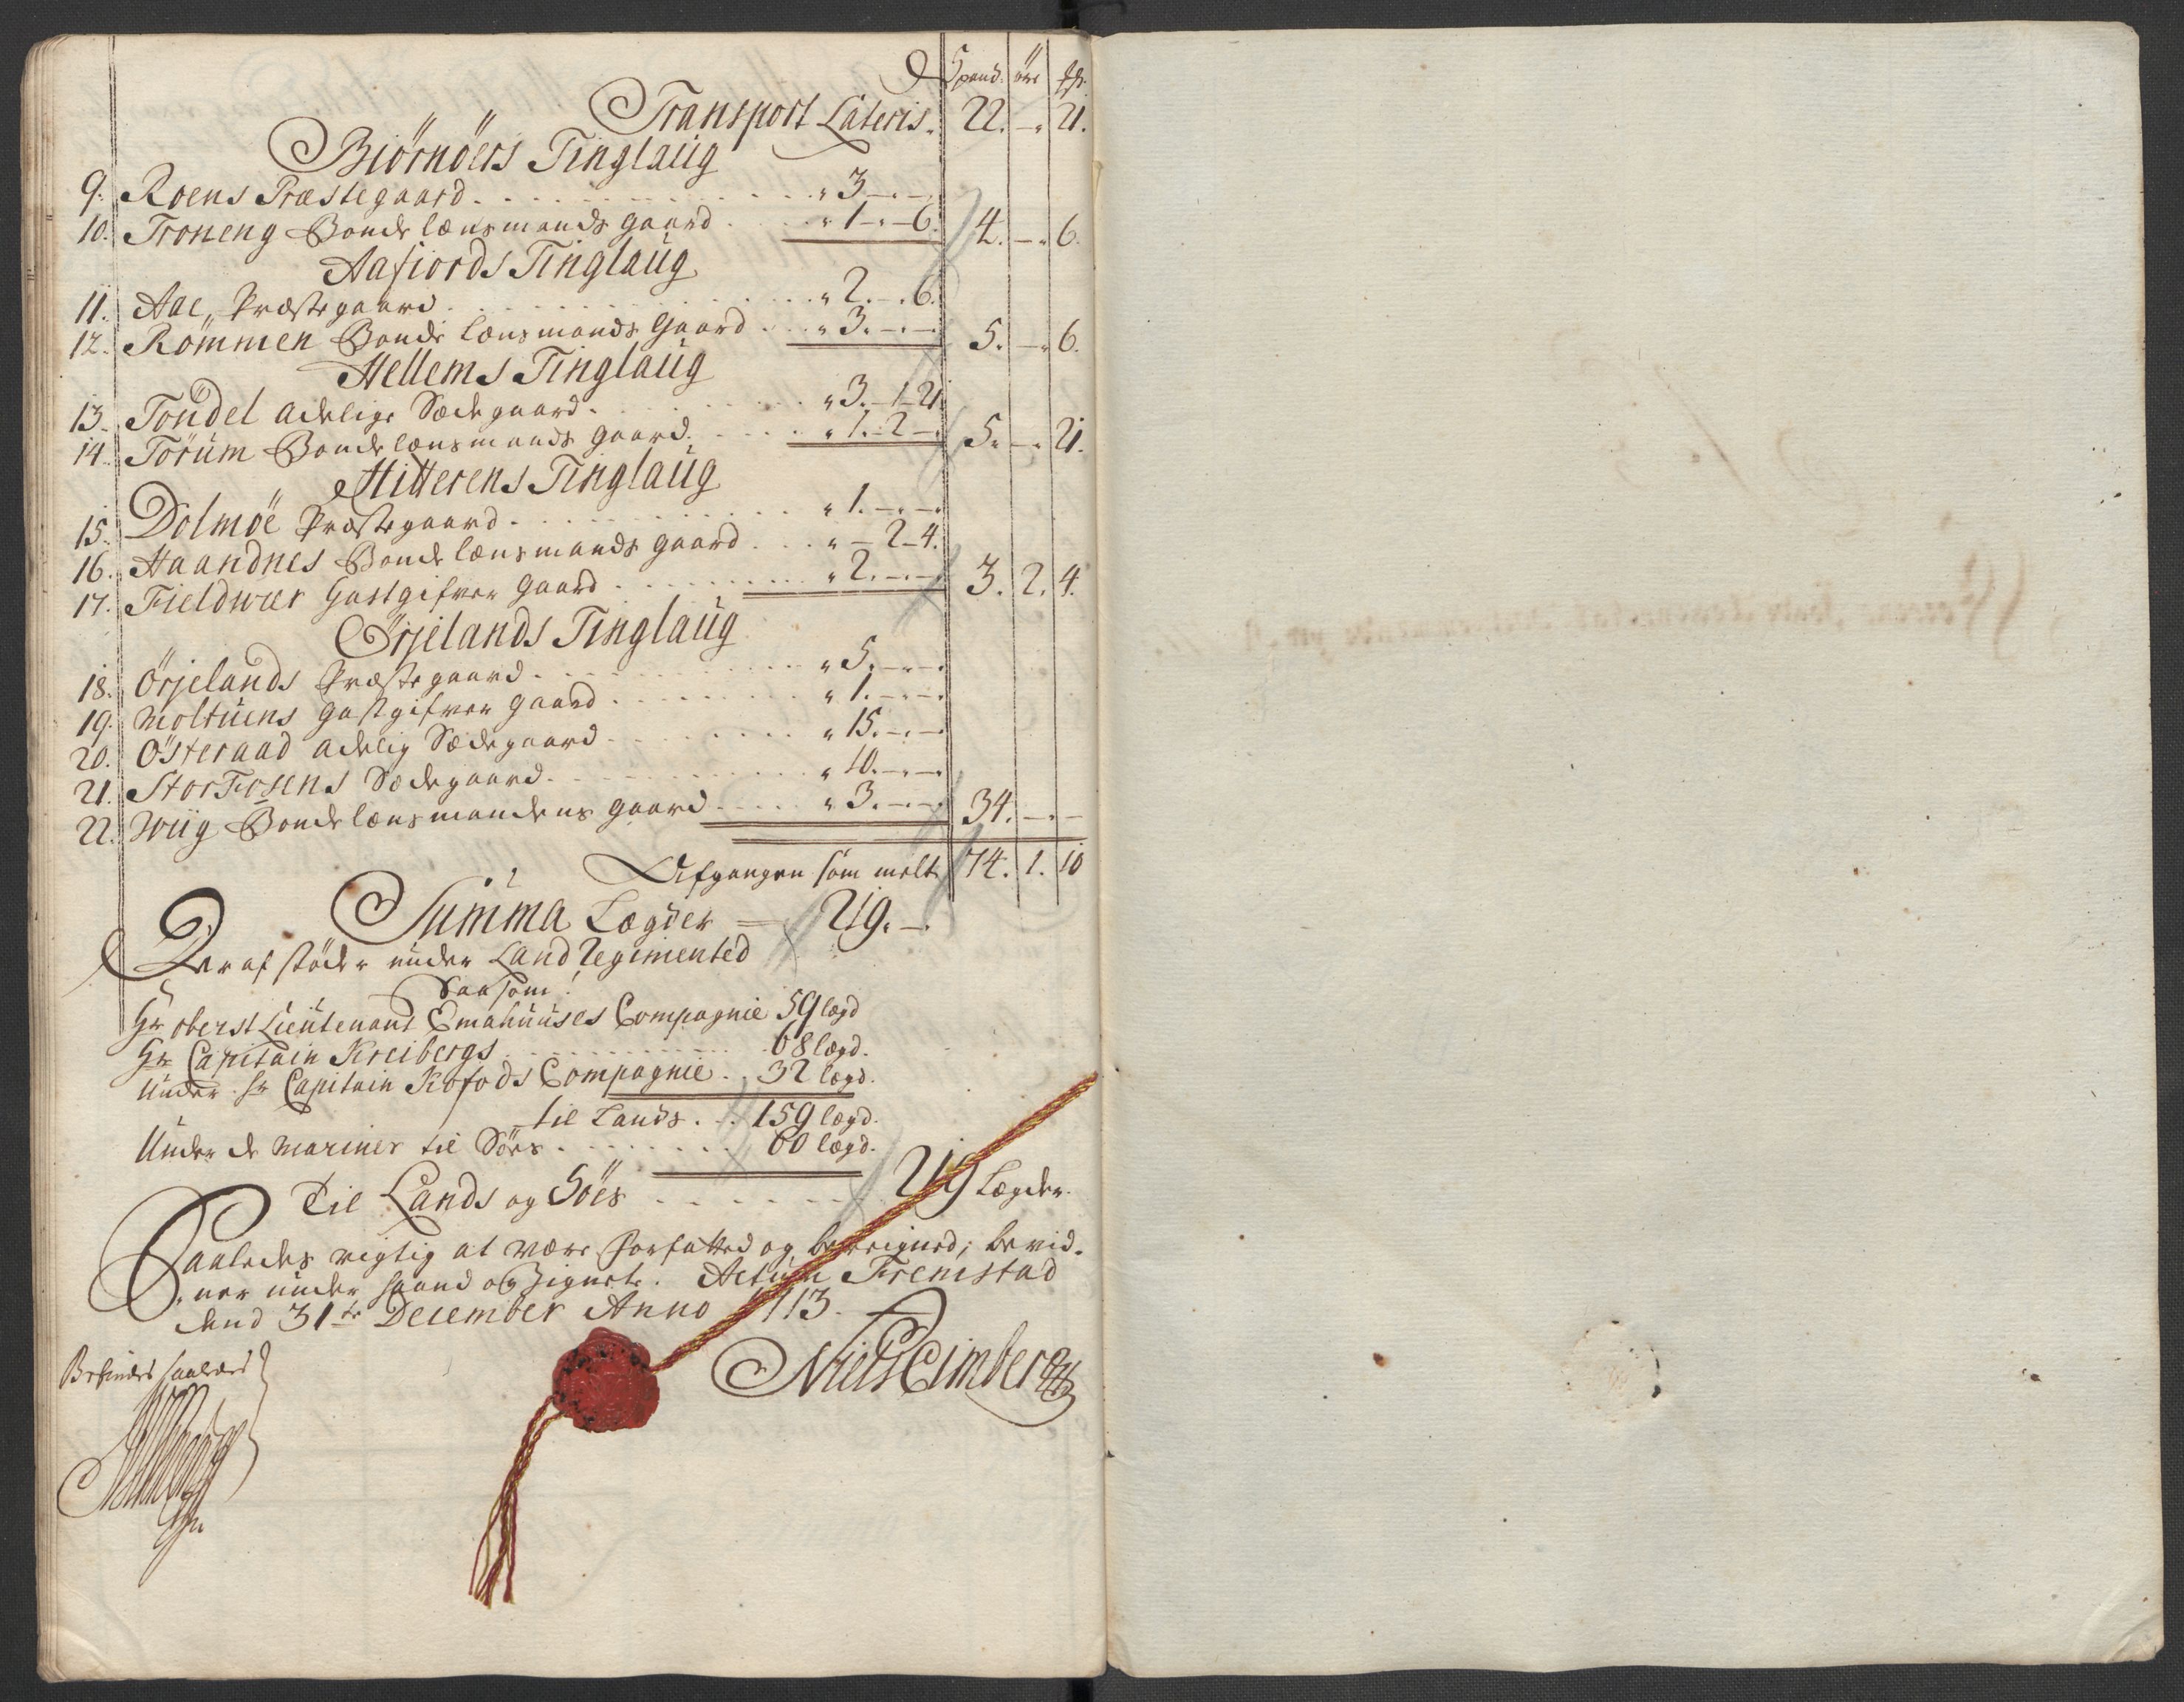 Spand. öre
Transport Lateris. 22. – . 21.
Biörnöers Tinglaug
9. Roens Præstegaard . . . " 3. – . –
10. Troneng Bonde lænsmands gaard . . . " 1 – . – 6. 4. – . 6.
Aafiords Tinglaug
11. Aae, Præstegaard . . . " 2. – . 6.
12. Römmen Bonde lænsmands Gaard . . . " 3. – . – 5. – . 6.
Hellems Tinglaug
13. Tondel adelige Sædegaard . . . " 3. – 1 – 21
14. Törum Bonde lænsmands gaard . . . " 1. – 2 – 5. – . 21.
Hitterens Tinglaug
15. Dolmöe Præstegaard . . . " 1. – . –
16. Haandnes Bonde lænsmands gaard . . . " – 2 – 4.
17. Fieldwær Gastgifver Gaard . . . " 2. – . – 3. 2. 4.
Örjelands Tinglaug
18. Örjelands Præstegaard . . . " 5. – . –
19. Moltuens gastgifver gaard . . . " 1. – . –
20. Österaad adelig Sædegaard . . . " 15. – . –
21. StorFosens Sædegaard . . . " 10. – . –
22. Wiig Bonde lænsmandens gaard . . . " 3. – . – 34. – . –
Afgangen som melt 74. 1. 10
Summa Lægder = 219. –
Der af støder under Land Regimented
Saasom!
Hr oberst Lieutenant Emahuuses Compagnie 59 lægd
Hr Capitain Kreibergs . . . 68 lægd.
Under Hr Capitain Kofods Compagnie . . 32 lægd.
til Lands . . . 159 lægd.
Under de Mariner til Söes . . . 60 lægd.
Til Lands og Söes . . . 219 Lægder.
Saaledes rigtig at være forfatted og beregned; bevid-
ner under haand og Zignete. Actum Fremstad
dend 31te December Anno 1713.
Niels Cimber
Befindes saaledes